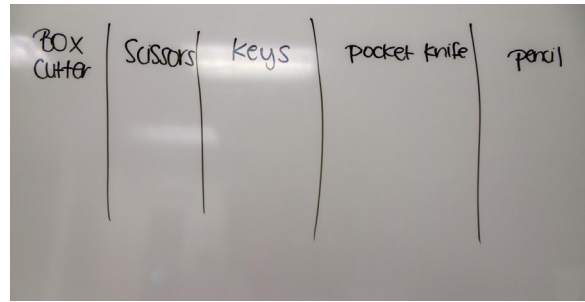 BOX
Cutter
Scissors
keys
pocket knife
pencil